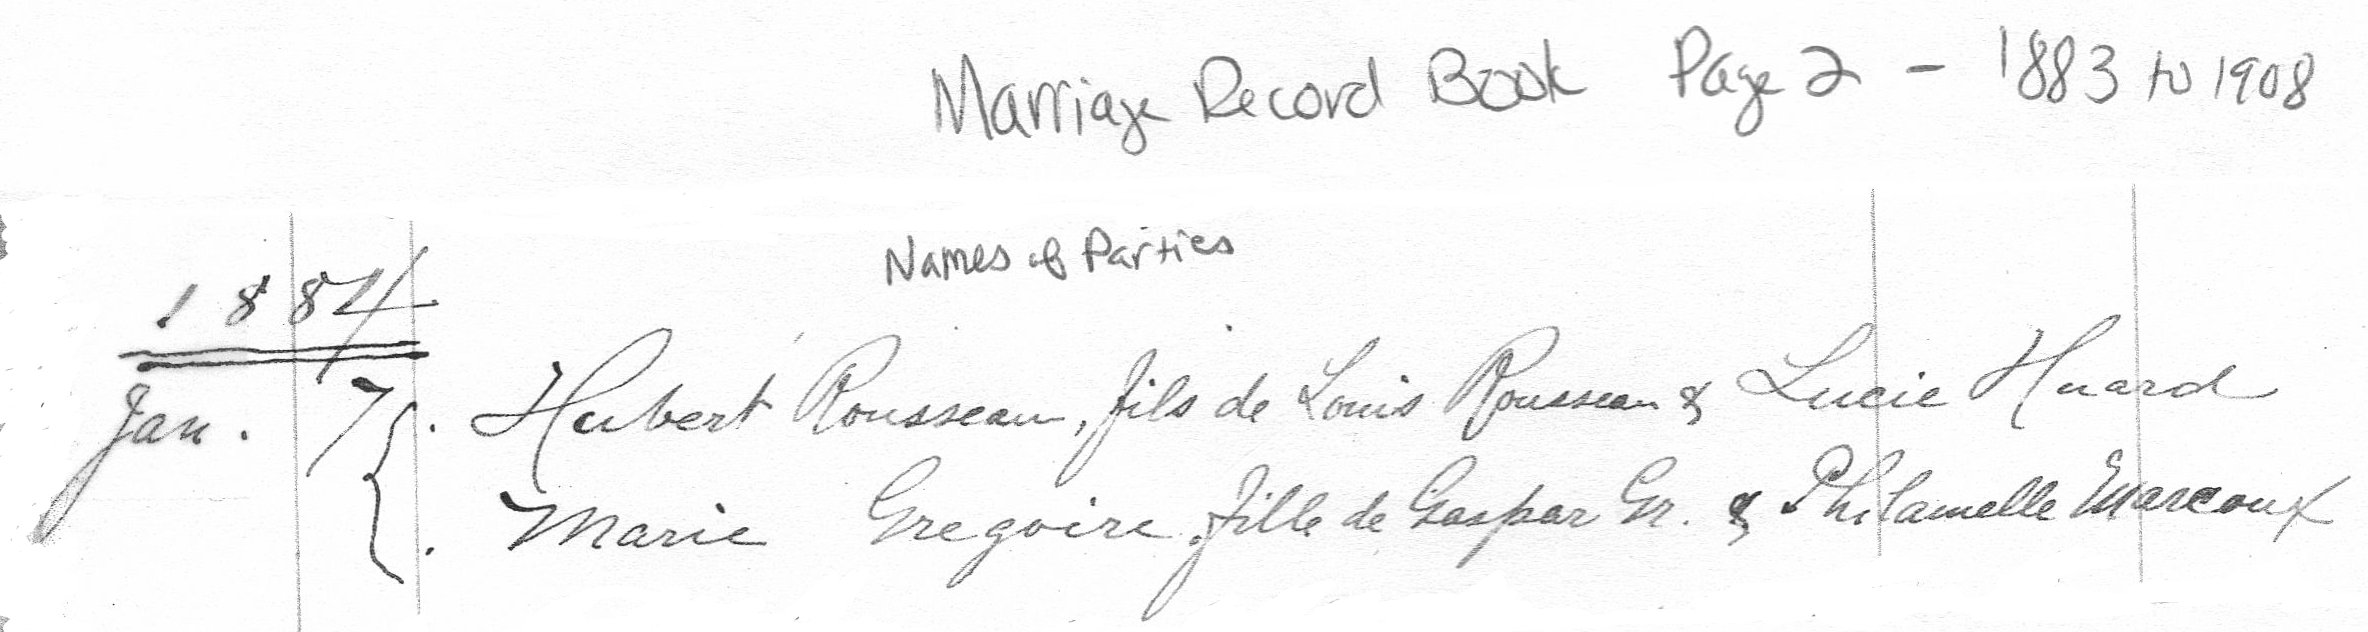 Marriage Record Book Page 2 - 1883 to 1908
Names of Parties
1884
Jan. 7 . Hubert Rousseau, fils de Louis Rousseau & Lucie Huard
. Marie Gregoire, fille de Gaspar Gr. & Philamelle Marcoux